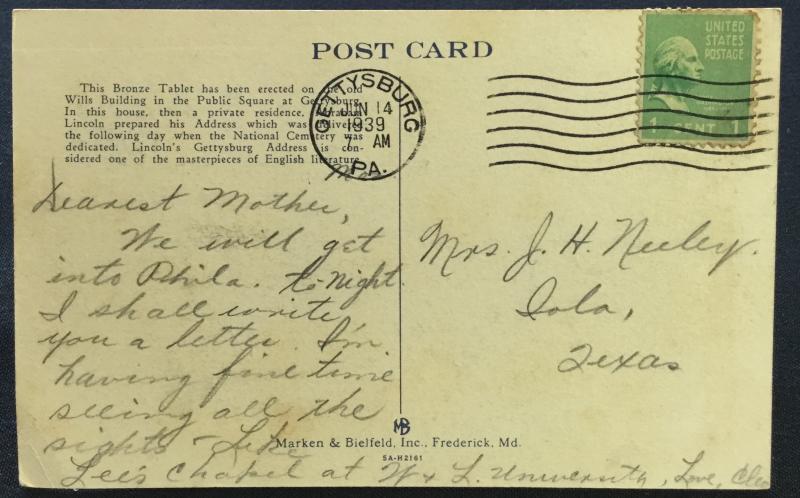 POST CARD
This Bronze Tablet has been erected on the old
Wills Building in the Public Square at Gettysburg.
In this house, then a private residence, Abraham
Lincoln prepared his Address which was delivered
the following day when the National Cemetery was
dedicated. Lincoln's Gettysburg Address is con-
sidered one of the masterpieces of English literature.
GETTYSBURG
JUN 14
1939
AM
PA.
UNITED
STATES
POSTAGE
1 CENT 1
Dearest Mother,
We will get
into Phila. to-night.
I shall write
you a letter. I'm
having fine time
seeing all the
sights - Like
Lee's Chapel at W & L. University, Love, Cleo
Mrs. J. H. Neeley.
Iola,
Texas
MB
Marken & Bielfeld, Inc., Frederick, Md.
5A-H2161